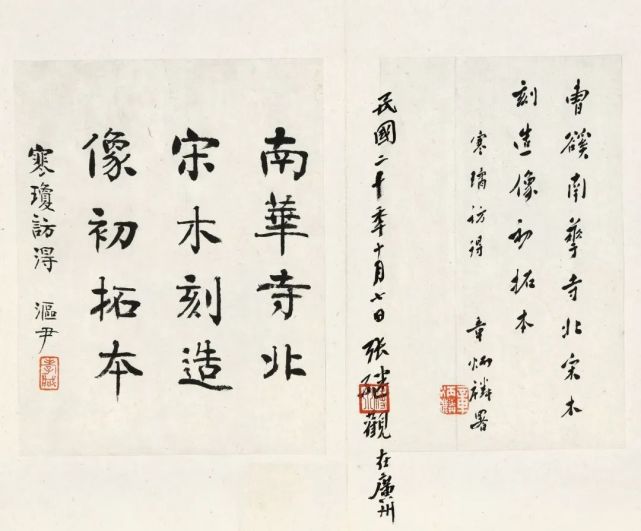 曹谿南華寺北宋木
刻造像初拓本
寒璚訪得
章炳麟署
民國二十年十月七日張繼觀在廣州
南華寺北
宋木刻造
像初拓本
寒瓊訪得 漚尹